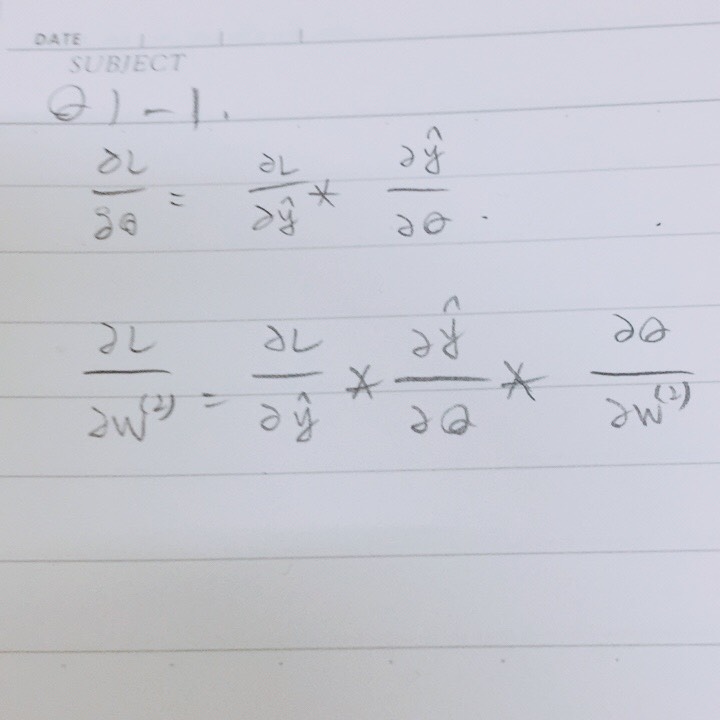 DATE
SUBJECT
Q1-1.
∂L/∂θ = ∂L/∂ŷ * ∂ŷ/∂θ .
∂L/∂W⁽²⁾ = ∂L/∂ŷ * ∂ŷ/∂θ * ∂θ/∂W⁽²⁾